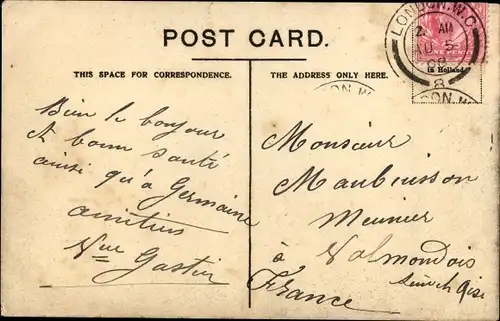 POST CARD.
THIS SPACE FOR CORRESPONDENCE.
THE ADDRESS ONLY HERE.
LONDON. W.C
AM
AU 5
08
8
ONE PENNY
in Holland
Bien le bonjour
et bonne santé
ainsi qu'à Germaine
amitiés
Vve Gastier
Monsieur
Maubuisson
Meunier
à Valmondois
Seine et Oise
France